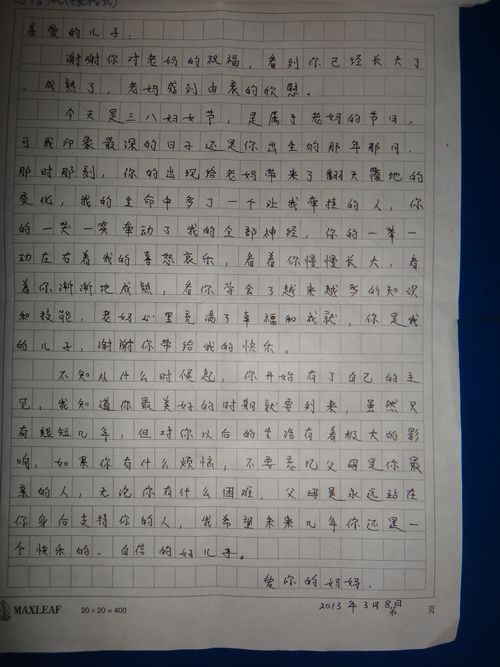 亲爱的儿子:
谢谢你对老妈的祝福,看到你已经长大了
、成熟了,老妈感到由衷的欣慰。
今天是三八妇女节,是属于老妈的节日,
可我印象最深的日子还是你出生的那年那月.
那时那刻,你的出现给老妈带来了翻天覆地的
变化,我的生命中多了一个让我牵挂的人,你
的一哭一笑牵动了我的全部神经,你的一举一
动左右着我的喜怒哀乐,看着你慢慢长大,看
着你渐渐地成熟,看你学会了越来越多的知识
和技能,老妈心里充满了幸福和成就,你是我
的儿子,谢谢你带给我的快乐。
不知从什么时候起,你开始有了自己的主
见,我知道你最美好的时期就要到来,虽然只
有短短几年,但对你以后的生活有着极大的影
响,如果你有什么烦恼,不要忘记父母是你最
亲的人,无论你有什么困难,父母是永远站在
你身后支持你的人,我希望未来几年你还是一
个快乐的.自信的好儿子。
爱你的妈妈.
2013年3月8日
MAXLEAF 20×20=400 第 页